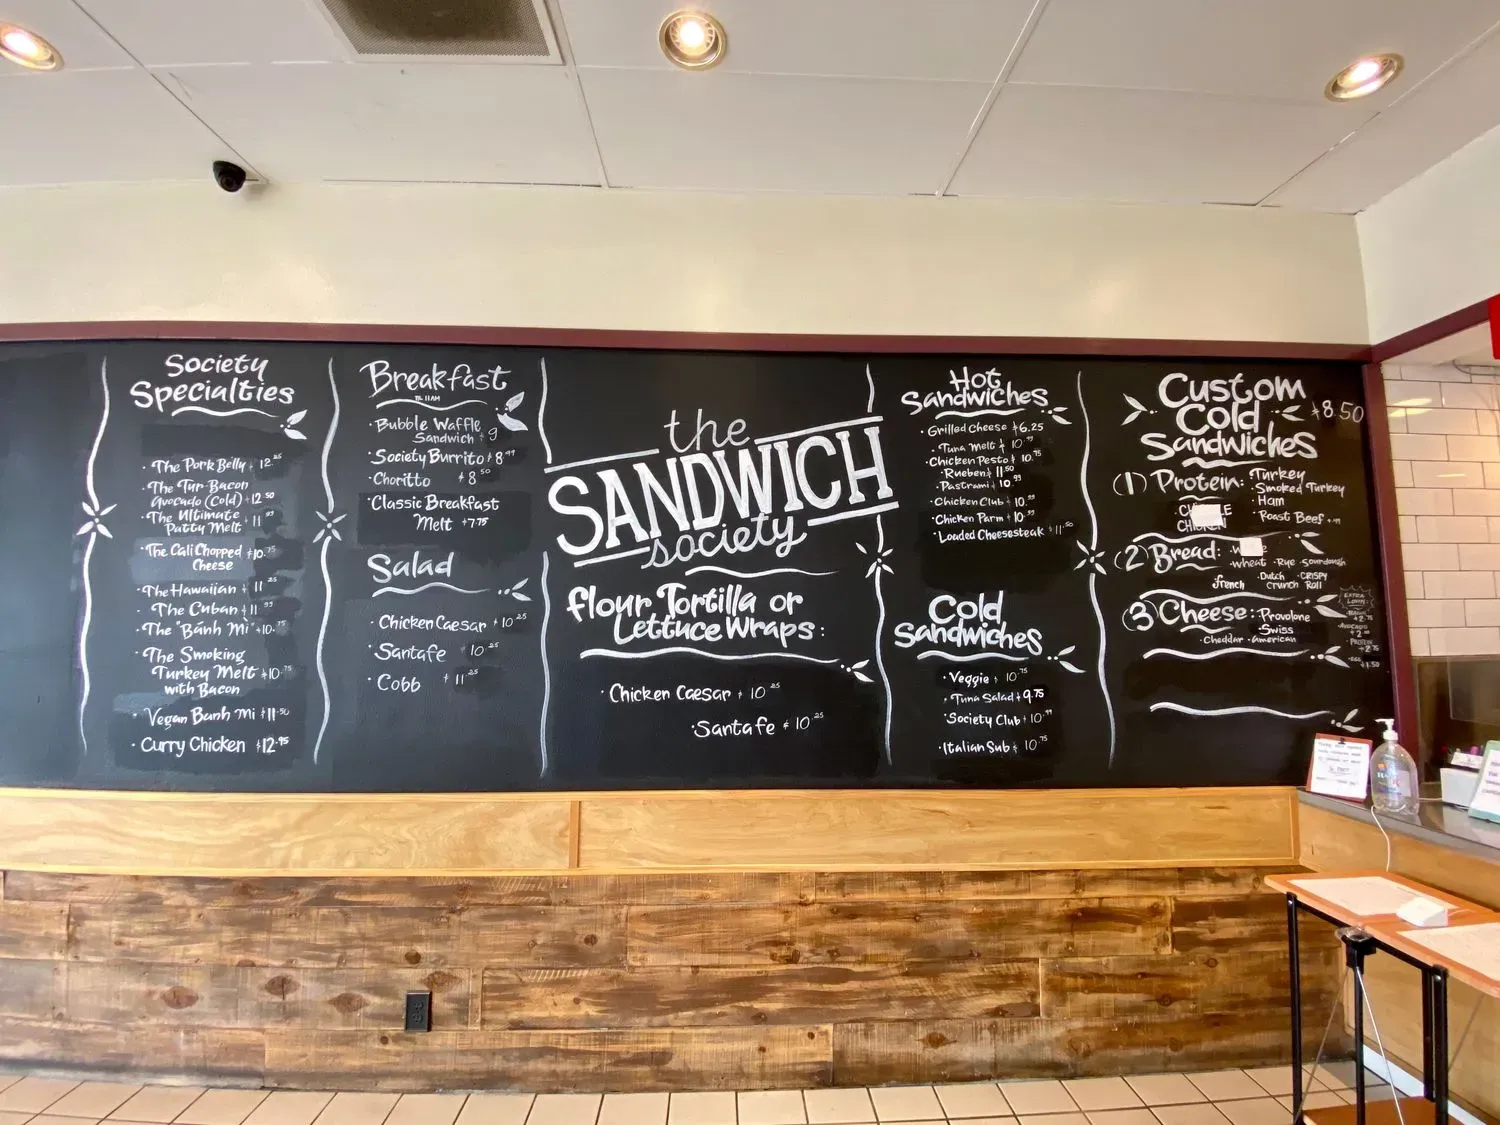 Society
Specialties
· The Pork Belly $12.25
· The Tur-Bacon
Avocado (Cold) $12.50
· The Ultimate
Patty Melt $11
· The Cali Chopped $10.75
Cheese
· The Hawaiian $11.25
· The Cuban $11
· The "Bánh Mì" $10.75
· The Smoking
Turkey Melt $10.75
with Bacon
· Vegan Banh Mi $11.50
· Curry Chicken $12.95
Breakfast
TIL 11AM
· Bubble Waffle
Sandwich $9
· Society Burrito $8
· Choritto $8.50
· Classic Breakfast
Melt $7.75
Salad
· Chicken Caesar $10.25
· Santafe 10.25
· Cobb $11.25
the
SANDWICH
society
flour Tortilla or
Lettuce Wraps:
· Chicken Caesar $10.25
· Santafe $10.25
Hot
Sandwiches
· Grilled Cheese $6.25
· Tuna Melt $10
· Chicken Pesto $10.75
· Rueben $11.50
· Pastrami $10.99
· Chicken Club $10
· Chicken Parm $10
· Loaded Cheesesteak $11.50
Cold
Sandwiches
· Veggie $10.75
· Tuna Salad $9.75
· Society Club $10
· Italian Sub $10.75
Custom
Cold $8.50
Sandwiches
(1) Protein: · Turkey
· Smoked Turkey
· Ham
· Roast Beef
(2) Bread:
· wheat · Rye · sourdough
french · Dutch Crunch · CRISPY Roll
(3) Cheese: · Provolone
· Swiss
· Cheddar · american
EXTRA
BACON
AVOCADO
PROTEIN
$2.75
$1.50